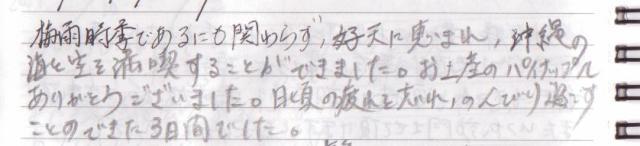 梅雨時季であるにも関わらず，好天に恵まれ，沖縄の
海と空を満喫することができました。お土産のパイナップル
ありがとうございました。日頃の疲れを忘れ，のんびり過ごす
ことのできた3日間でした。